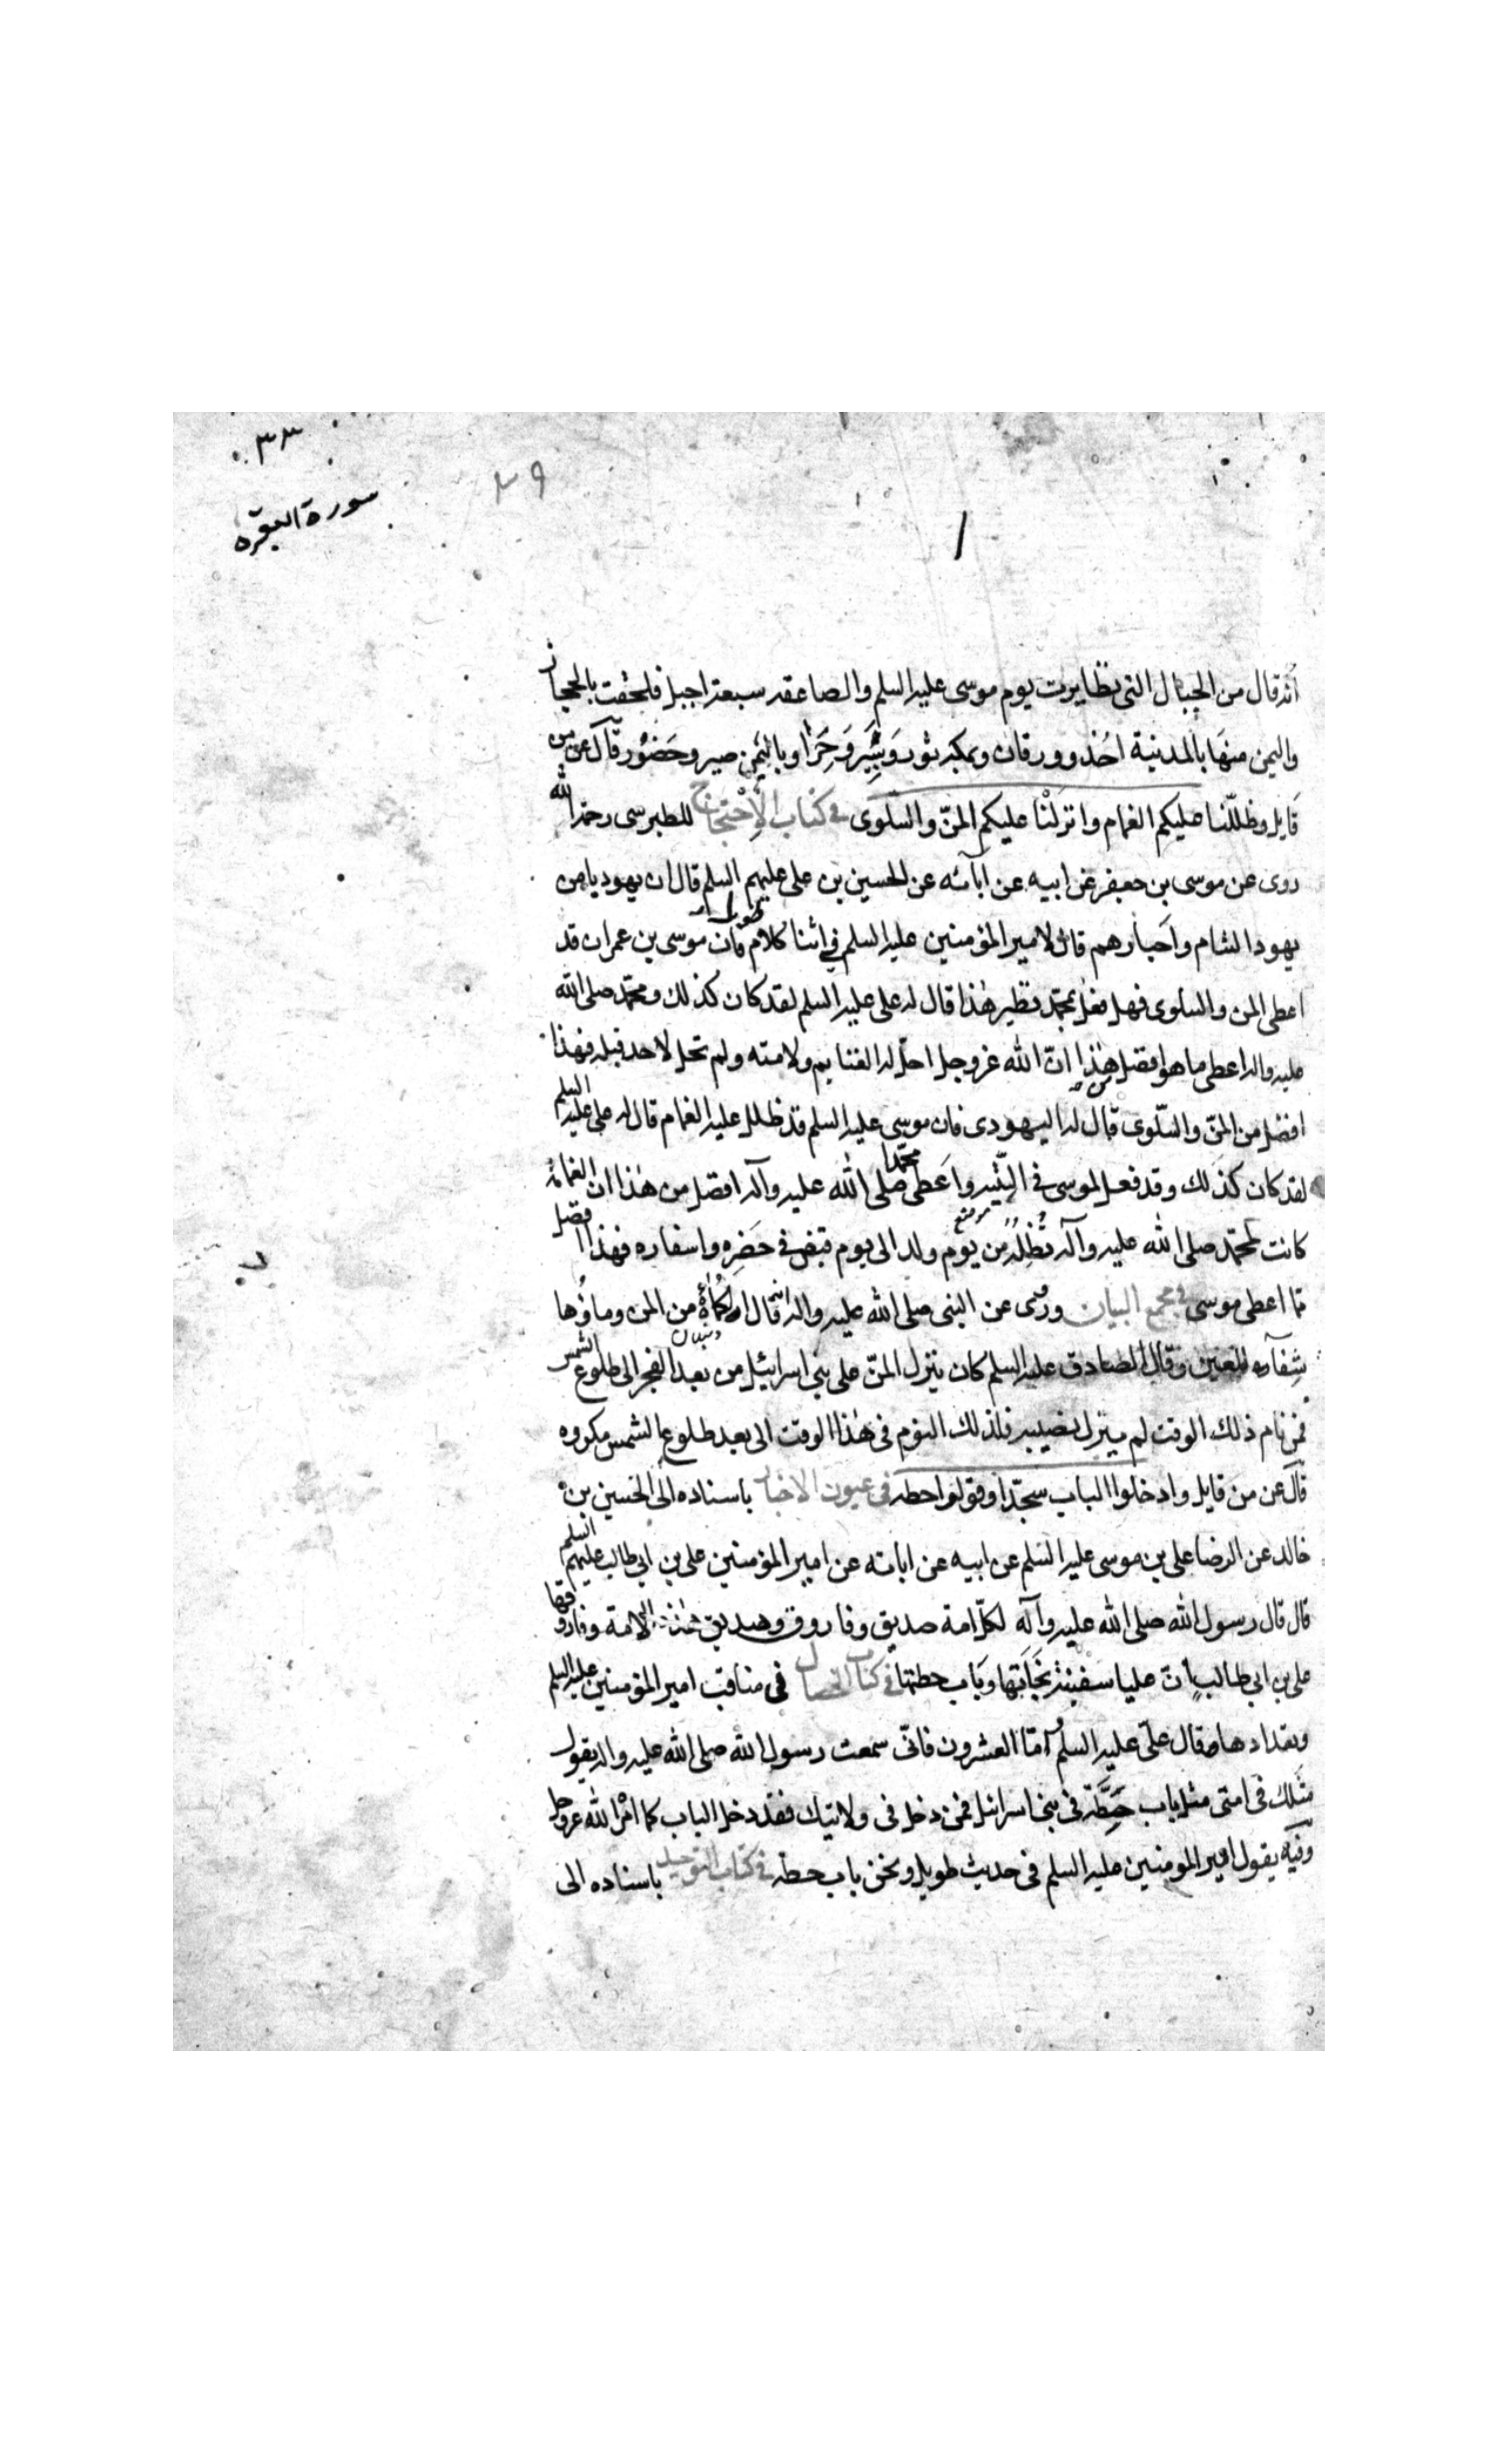 ٣٣
سورة البقره
٣٩
انه قال من الجبال التى تطايرت يوم موسى عليه السلم والصاعقه سبعة اجبل فلحقت بالحجاز
واليمن منها بالمدينة احد وورقان وبمكه ثور وثبير وحراء وباليمن صبر وحضور قال عز من
قايل وظللنا عليكم الغمام وانزلنا عليكم المنّ والسلوى فى كتاب الإحتجاج للطبرسى رحمه الله
روى عن موسى بن جعفر عن ابيه عن آبائه عن الحسين بن على عليهم السلم قال ان يهوديا من
يهود الشام واحبارهم قال لامير المؤمنين عليه السلم فى اثنا كلام طويل فان موسى بن عمران قد
اعطى المن والسلوى فهل فعل بمحمد نظير هذا قال له على عليه السلم لقد كان كذلك ومحمد صلى الله
عليه واله اعطى ما هو افضل من هذا انّ الله عزوجل احلّ له الغنايم ولامته ولم تحل لاحد قبله فهذا
افضل من المنّ والسّلوى قال له اليهودى فان موسى عليه السلم قد ظلل عليه الغمام قال له على عليه السلم
لقد كان كذلك وقد فعل لموسى فى التّيه واعطى محمدا صلى الله عليه وآله افضل من هذا ان الغمامة
كانت لمحمّد صلى الله عليه وآله تظله من يوم ولد الى يوم قبض فى حضره واسفاره فهذا افضل
مما اعطى موسى فى مجمع البيان وروى عن النبى صلى الله عليه واله انه قال الكمأة من المن وماؤها
شفآء للعين وقال الصادق عليه السلم كان ينزل المنّ على بنى اسرائيل من بعد الفجر الى طلوع الشمس
فمن نام ذلك الوقت لم ينزل نصيبه فلذلك النوم فى هذا الوقت الى بعد طلوع الشمس مكروه
قال عز من قايل وادخلوا الباب سجّدا وقولوا حطه فى عيون الاخبار باسناده الى الحسين بن
خالد عن الرضا على بن موسى عليه السلم عن ابيه عن ابائه عن امير المؤمنين على بن ابى طالب عليهم السلم
قال قال رسول الله صلى الله عليه وآله لكلّ امة صديق وفاروق وصديق هذه الامة وفاروقها
على بن ابى طالب إن عليا سفينة نجاتها وباب حطتها فى كتاب الخصال فى مناقب امير المؤمنين عليه السلم
وتعدادها قال علىّ عليه السلم وأمّا العشرون فانّى سمعت رسول الله صلى الله عليه واله يقول
مثلك فى امتى مثل باب حِطَّة فى بنى اسرائيل فمن دخل فى ولايتك فقد دخل الباب كما امر الله عزوجل
وفيه يقول امير المومنين عليه السلم فى حديث طويل ونحن باب حطه فى كتاب التوحيد باسناده الى